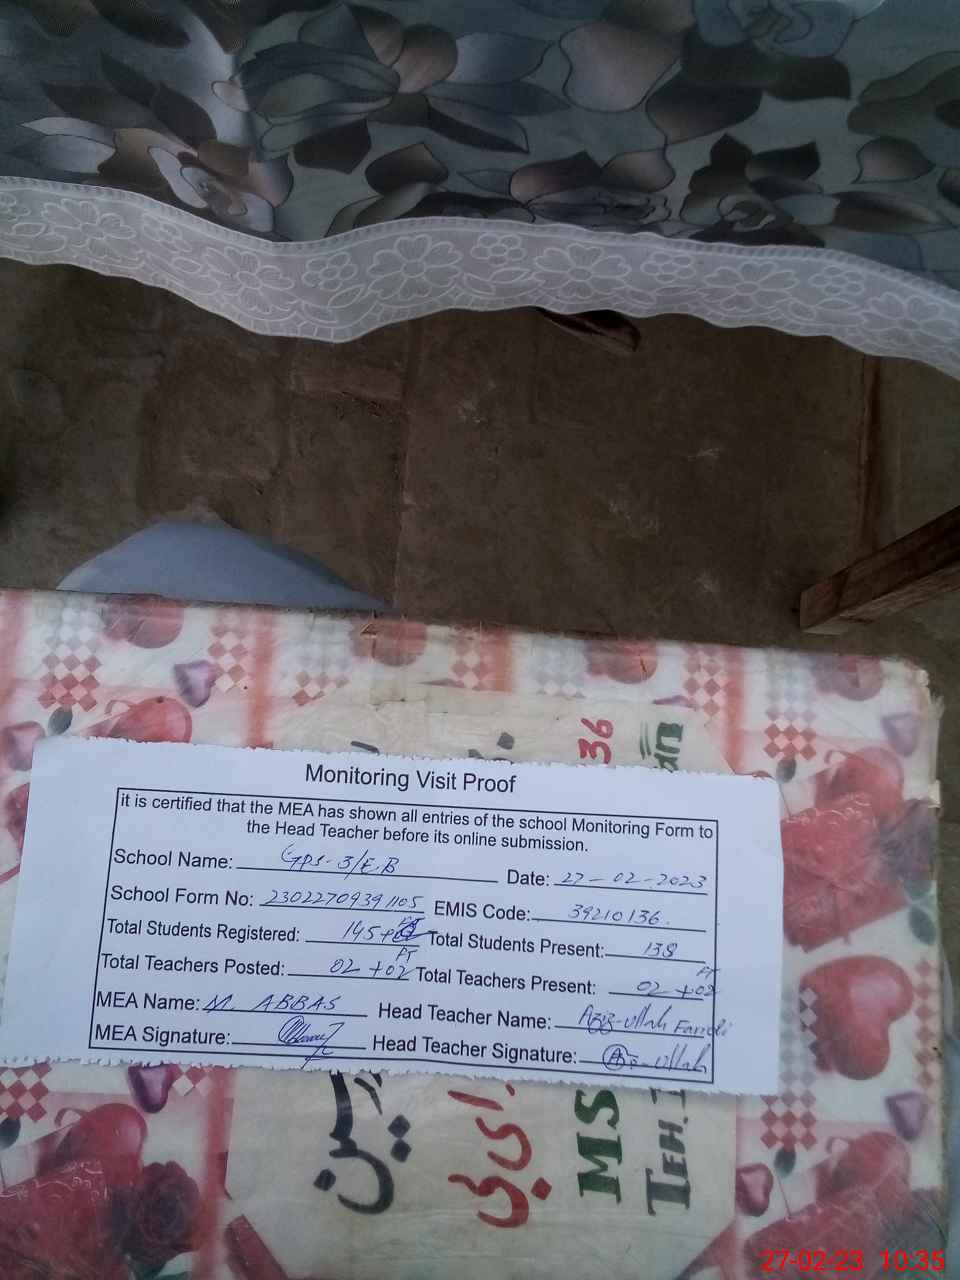 36
Monitoring Visit Proof
it is certified that the MEA has shown all entries of the school Monitoring Form to
the Head Teacher before its online submission.
School Name: GPS-3/E.B Date: 27-02-2023
School Form No: 23022709391105 EMIS Code: 39210136.
Total Students Registered: 145+ Total Students Present: 138
Total Teachers Posted: 02+02 PT Total Teachers Present: 02+02 PT
MEA Name: M. ABBAS Head Teacher Name: Aziz-ullah
MEA Signature: Head Teacher Signature: ullah
ای بی
MS
TEH.
27-02-23 10:35